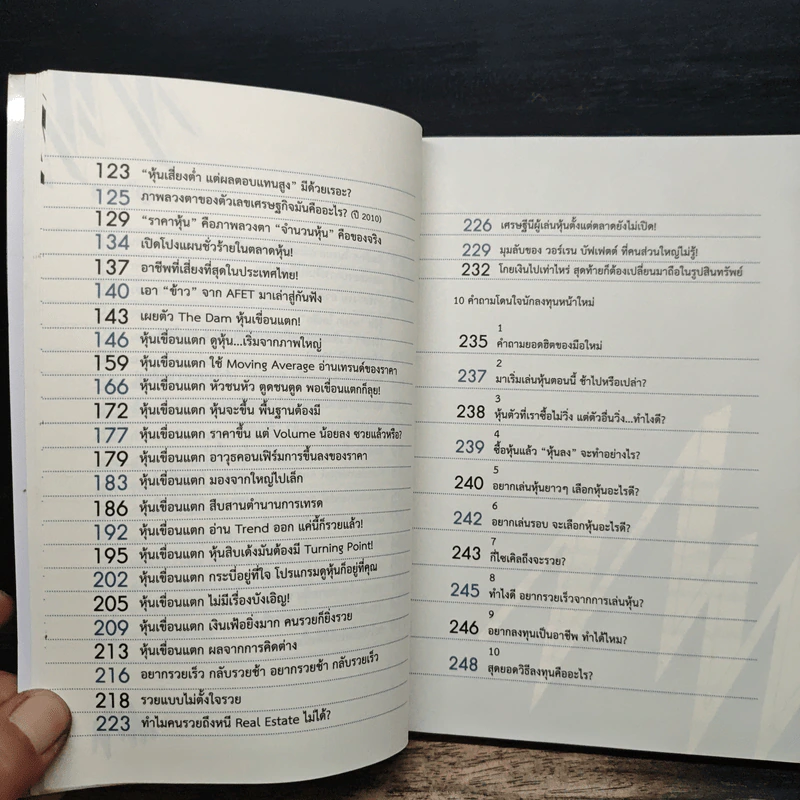 123 "หุ้นเสี่ยงต่ำ แต่ผลตอบแทนสูง" มีด้วยเรอะ?
125 ภาพลวงตาของตัวเลขเศรษฐกิจมันคืออะไร? (ปี 2010)
129 "ราคาหุ้น" คือภาพลวงตา "จำนวนหุ้น" คือของจริง
134 เปิดโปงแผนชั่วร้ายในตลาดหุ้น!
137 อาชีพที่เสี่ยงที่สุดในประเทศไทย!
140 เอา "ข้าว" จาก AFET มาเล่าสู่กันฟัง
143 เผยตัว The Dam หุ้นเขื่อนแตก!
146 หุ้นเขื่อนแตก ดูหุ้น...เริ่มจากภาพใหญ่
159 หุ้นเขื่อนแตก ใช้ Moving Average อ่านเทรนด์ของราคา
166 หุ้นเขื่อนแตก หัวชนหัว ตูดชนตูด พอเขื่อนแตกก็ลุย!
172 หุ้นเขื่อนแตก หุ้นจะขึ้น พื้นฐานต้องมี
177 หุ้นเขื่อนแตก ราคาขึ้น แต่ Volume น้อยลง ซวยแล้วหรือ?
179 หุ้นเขื่อนแตก อาวุธคอนเฟิร์มการขึ้นลงของราคา
183 หุ้นเขื่อนแตก มองจากใหญ่ไปเล็ก
186 หุ้นเขื่อนแตก สืบสานตำนานการเทรด
192 หุ้นเขื่อนแตก อ่าน Trend ออก แค่นี้ก็รวยแล้ว!
195 หุ้นเขื่อนแตก หุ้นสิบเด้งมันต้องมี Turning Point!
202 หุ้นเขื่อนแตก กระบี่อยู่ที่ใจ โปรแกรมดูหุ้นก็อยู่ที่คุณ
205 หุ้นเขื่อนแตก ไม่มีเรื่องบังเอิญ!
209 หุ้นเขื่อนแตก เงินเฟ้อยิ่งมาก คนรวยก็ยิ่งรวย
213 หุ้นเขื่อนแตก ผลจากการคิดต่าง
216 อยากรวยเร็ว กลับรวยช้า อยากรวยช้า กลับรวยเร็ว
218 รวยแบบไม่ตั้งใจรวย
223 ทำไมคนรวยถึงหนี Real Estate ไม่ได้?
226 เศรษฐีนีผู้เล่นหุ้นตั้งแต่ตลาดยังไม่เปิด!
229 มุมลับของ วอร์เรน บัฟเฟตต์ ที่คนส่วนใหญ่ไม่รู้!
232 โกยเงินไปเท่าไหร่ สุดท้ายก็ต้องเปลี่ยนมาถือในรูปสินทรัพย์
10 คำถามโดนใจนักลงทุนหน้าใหม่
1
235 คำถามยอดฮิตของมือใหม่
2
237 มาเริ่มเล่นหุ้นตอนนี้ ช้าไปหรือเปล่า?
3
238 หุ้นตัวที่เราซื้อไม่วิ่ง แต่ตัวอื่นวิ่ง...ทำไงดี?
4
239 ซื้อหุ้นแล้ว "หุ้นลง" จะทำอย่างไร?
5
240 อยากเล่นหุ้นยาวๆ เลือกหุ้นอะไรดี?
6
242 อยากเล่นรอบ จะเลือกหุ้นอะไรดี?
7
243 กี่ไซเคิลถึงจะรวย?
8
245 ทำไงดี อยากรวยเร็วจากการเล่นหุ้น?
9
246 อยากลงทุนเป็นอาชีพ ทำได้ไหม?
10
248 สุดยอดวิธีลงทุนคืออะไร?